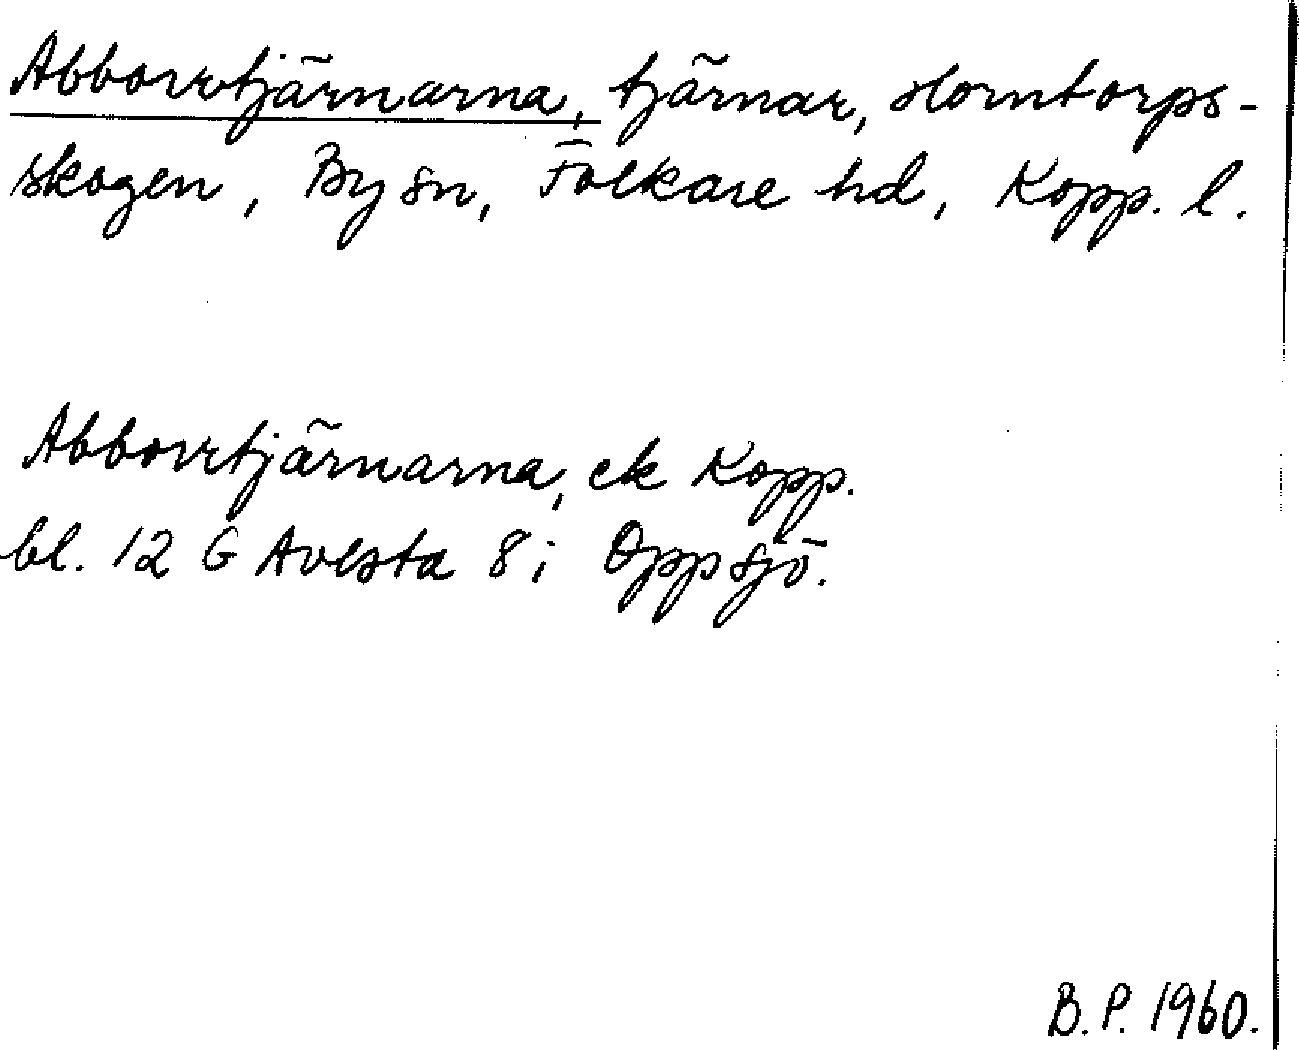 Abborrtjärnarna, tjärnar, Horntorps-
skogen, By sn, Folkare hd, Kopp. l.
Abborrtjärnarna, ek Kopp.
bl. 12 G Avesta 8i Oppsjö.
B.P. 1960.